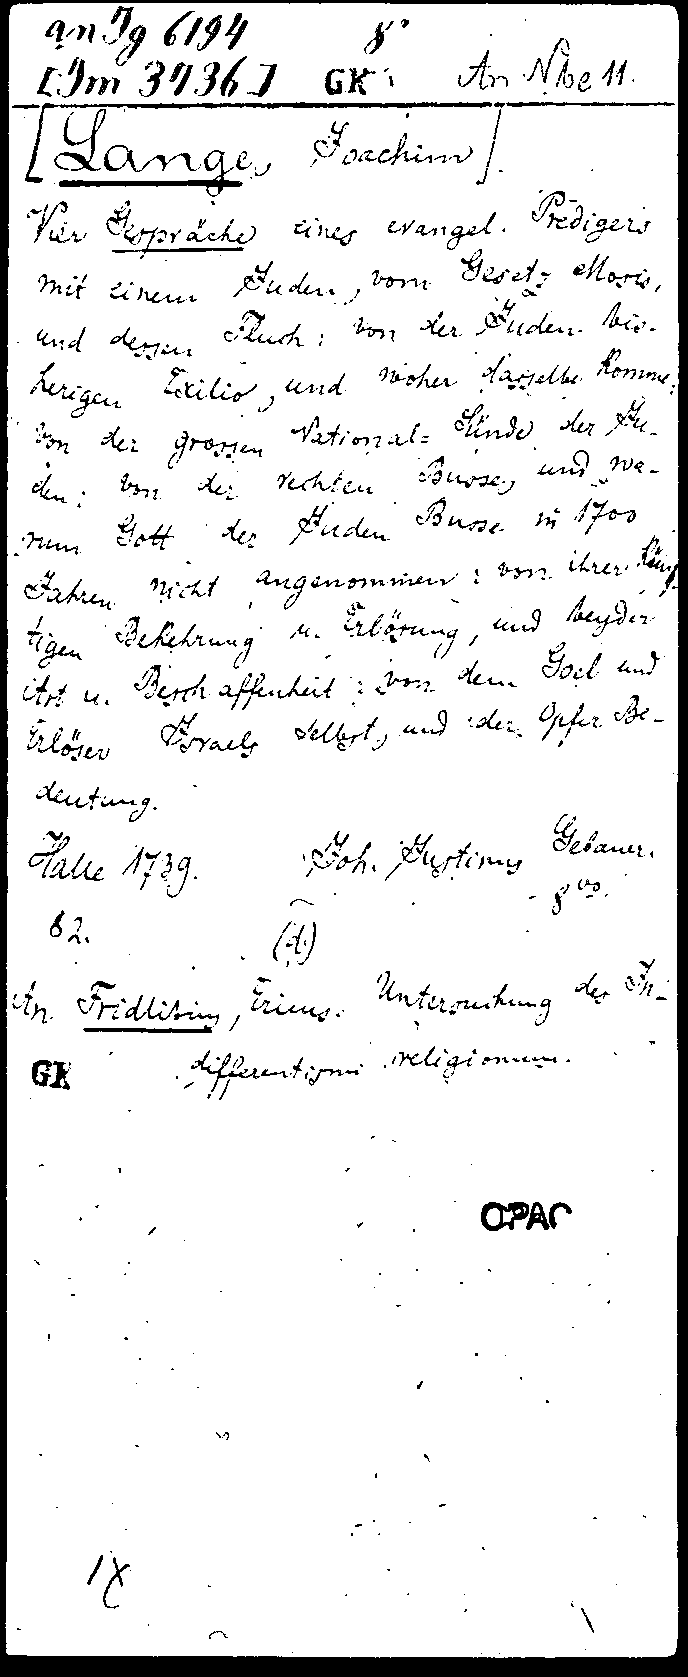 an Ig 6194 8°
[Im 3736] GK An Nbe 11.
[Lange, Joachim].
Vier Gespräche eines evangel. Predigers
mit einem Juden, vom Gesetz Mosis,
und dessen Fluch: von der Juden bis-
herigen Exilio, und woher dasselbe komme:
von der grossen National-Sünde der Ju-
den: von der rechten Busse, und wa-
rum Gott der Juden Busse in 1700
Jahren nicht angenommen: von ihrer künf-
tigen Bekehrung u. Erlösung, und beyder
Art u. Beschaffenheit: von dem Goel und
Erlöser Israels selbst, und der Opfer Be-
deutung.
Halle 1739. Joh. Justinus Gebauer.
8vo.
62. (d.)
An Fridlibius, Ericus. Untersuchung des In-
GK differentismi religionum.
OPAC